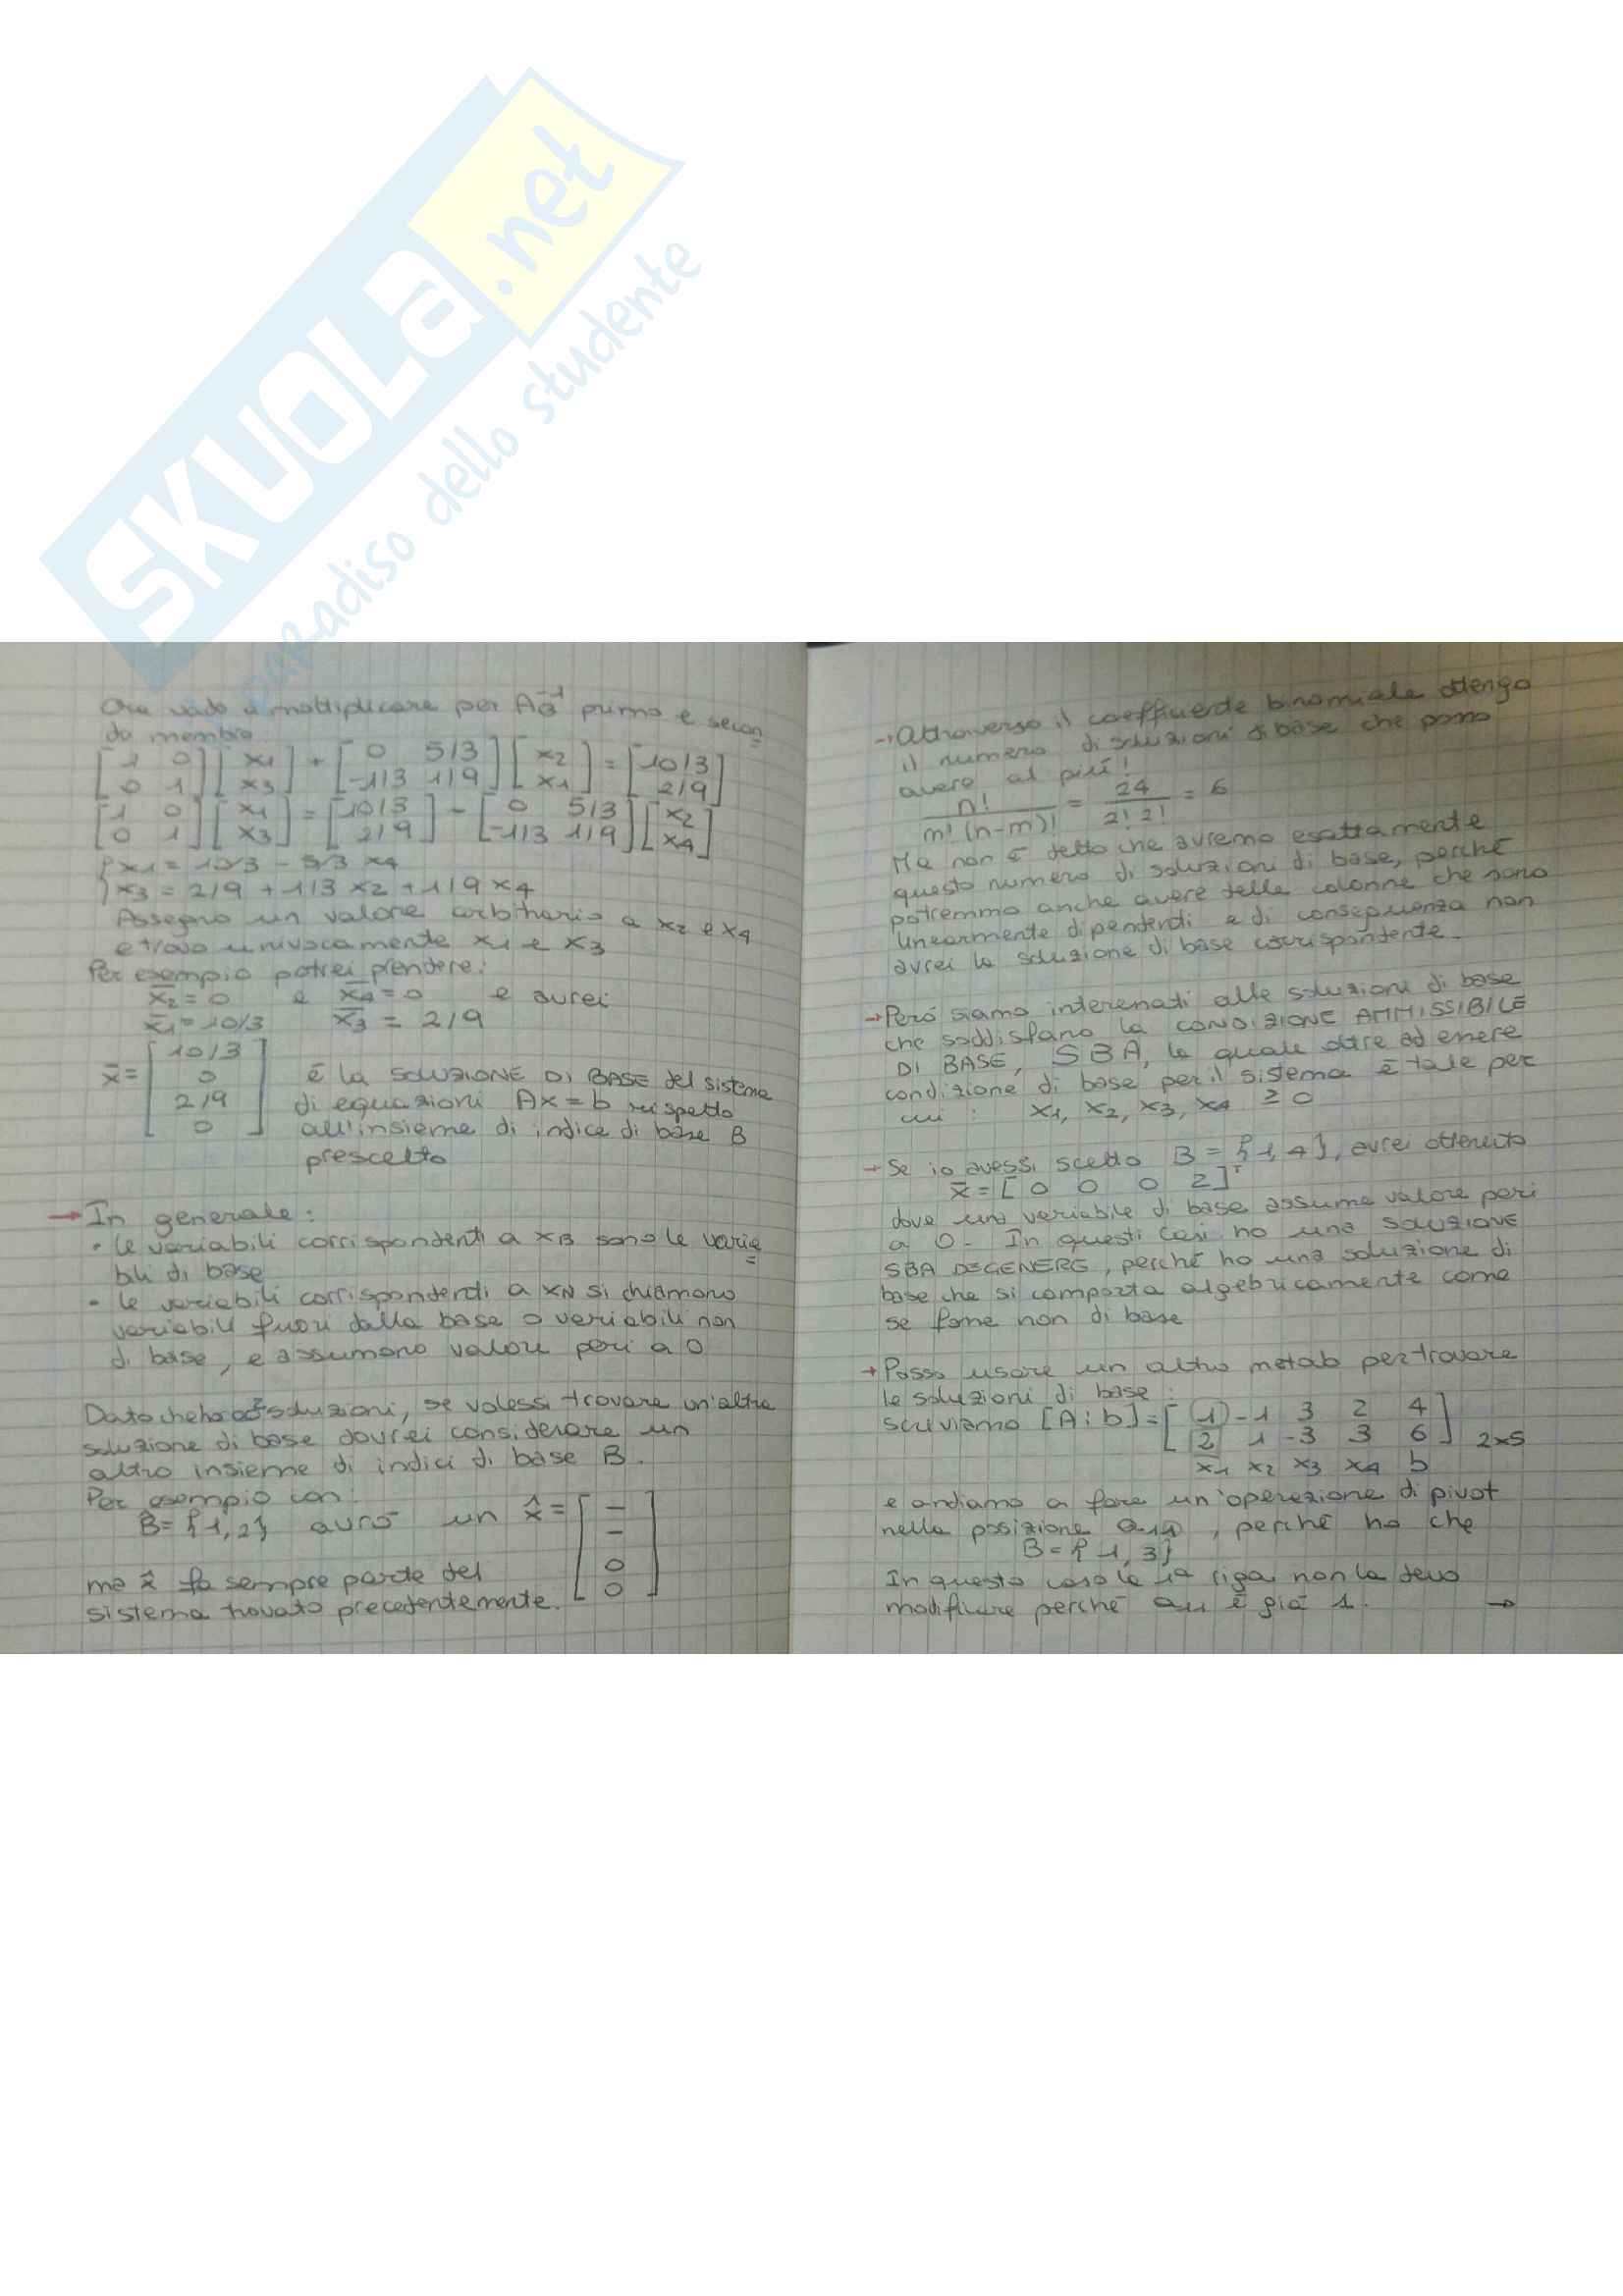 SKUOLA.net
paradiso dello studente
Ora vado a moltiplicare per A_B^-1 primo e secon
do membro
[1 0; 0 1] [x1; x3] + [0 5/3; -1/3 1/9] [x2; x1] = [10/3; 2/9]
[1 0; 0 1] [x1; x3] = [10/3; 2/9] - [0 5/3; -1/3 1/9] [x2; x4]
{ x1 = 10/3 - 5/3 x4
x3 = 2/9 + 1/3 x2 + 1/9 x4
Assegno un valore arbitrario a x2 e x4
e trovo univocamente x1 e x3
Per esempio potrei prendere:
x̄2 = 0 e x̄4 = 0 e avrei
x̄1 = 10/3 x̄3 = 2/9
x̄ = [10/3; 0; 2/9; 0]
è la SOLUZIONE DI BASE del sistema
di equazioni Ax = b rispetto
all'insieme di indice di base B
prescelto
→ In generale:
• le variabili corrispondenti a xB sono le varia
bili di base
• le variabili corrispondenti a xN si chiamano
variabili fuori dalla base o variabili non
di base, e assumono valori pari a 0
Dato che ho ∞² soluzioni, se volessi trovare un'altra
soluzione di base dovrei considerare un
altro insieme di indici di base B.
Per esempio con:
B̂ = {1, 2} avrò un x̂ = [–; –; 0; 0]
ma x̂ fa sempre parte del
sistema trovato precedentemente.
→ Attraverso il coefficiente binomiale ottengo
il numero di soluzioni di base che posso
avere al più!
n! / m! (n-m)! = 24 / 2! 2! = 6
Ma non è detto che avremo esattamente
questo numero di soluzioni di base, perché
potremmo anche avere delle colonne che sono
linearmente dipendenti e di conseguenza non
avrei la soluzione di base corrispondente.
→ Però siamo interessati alle soluzioni di base
che soddisfano la CONDIZIONE AMMISSIBILE
DI BASE, SBA, la quale oltre ad essere
condizione di base per il sistema è tale per
cui : x1, x2, x3, x4 ≥ 0
→ Se io avessi scelto B = {1, 4}, avrei ottenuto
x̄ = [0 0 0 2]ᵀ
dove una variabile di base assume valore pari
a 0. In questi casi ho una SOLUZIONE
SBA DEGENERE, perché ho una soluzione di
base che si comporta algebricamente come
se fosse non di base
→ Posso usare un altro metodo per trovare
le soluzioni di base :
scriviamo [A ⋮ b] = [1 -1 3 2 4; 2 1 -3 3 6] 2x5
x1 x2 x3 x4 b
e andiamo a fare un'operazione di pivot
nella posizione a11, perché ho che
B = {1, 3}
In questo caso la 1ª riga non la devo
modificare perché a11 è già 1. →